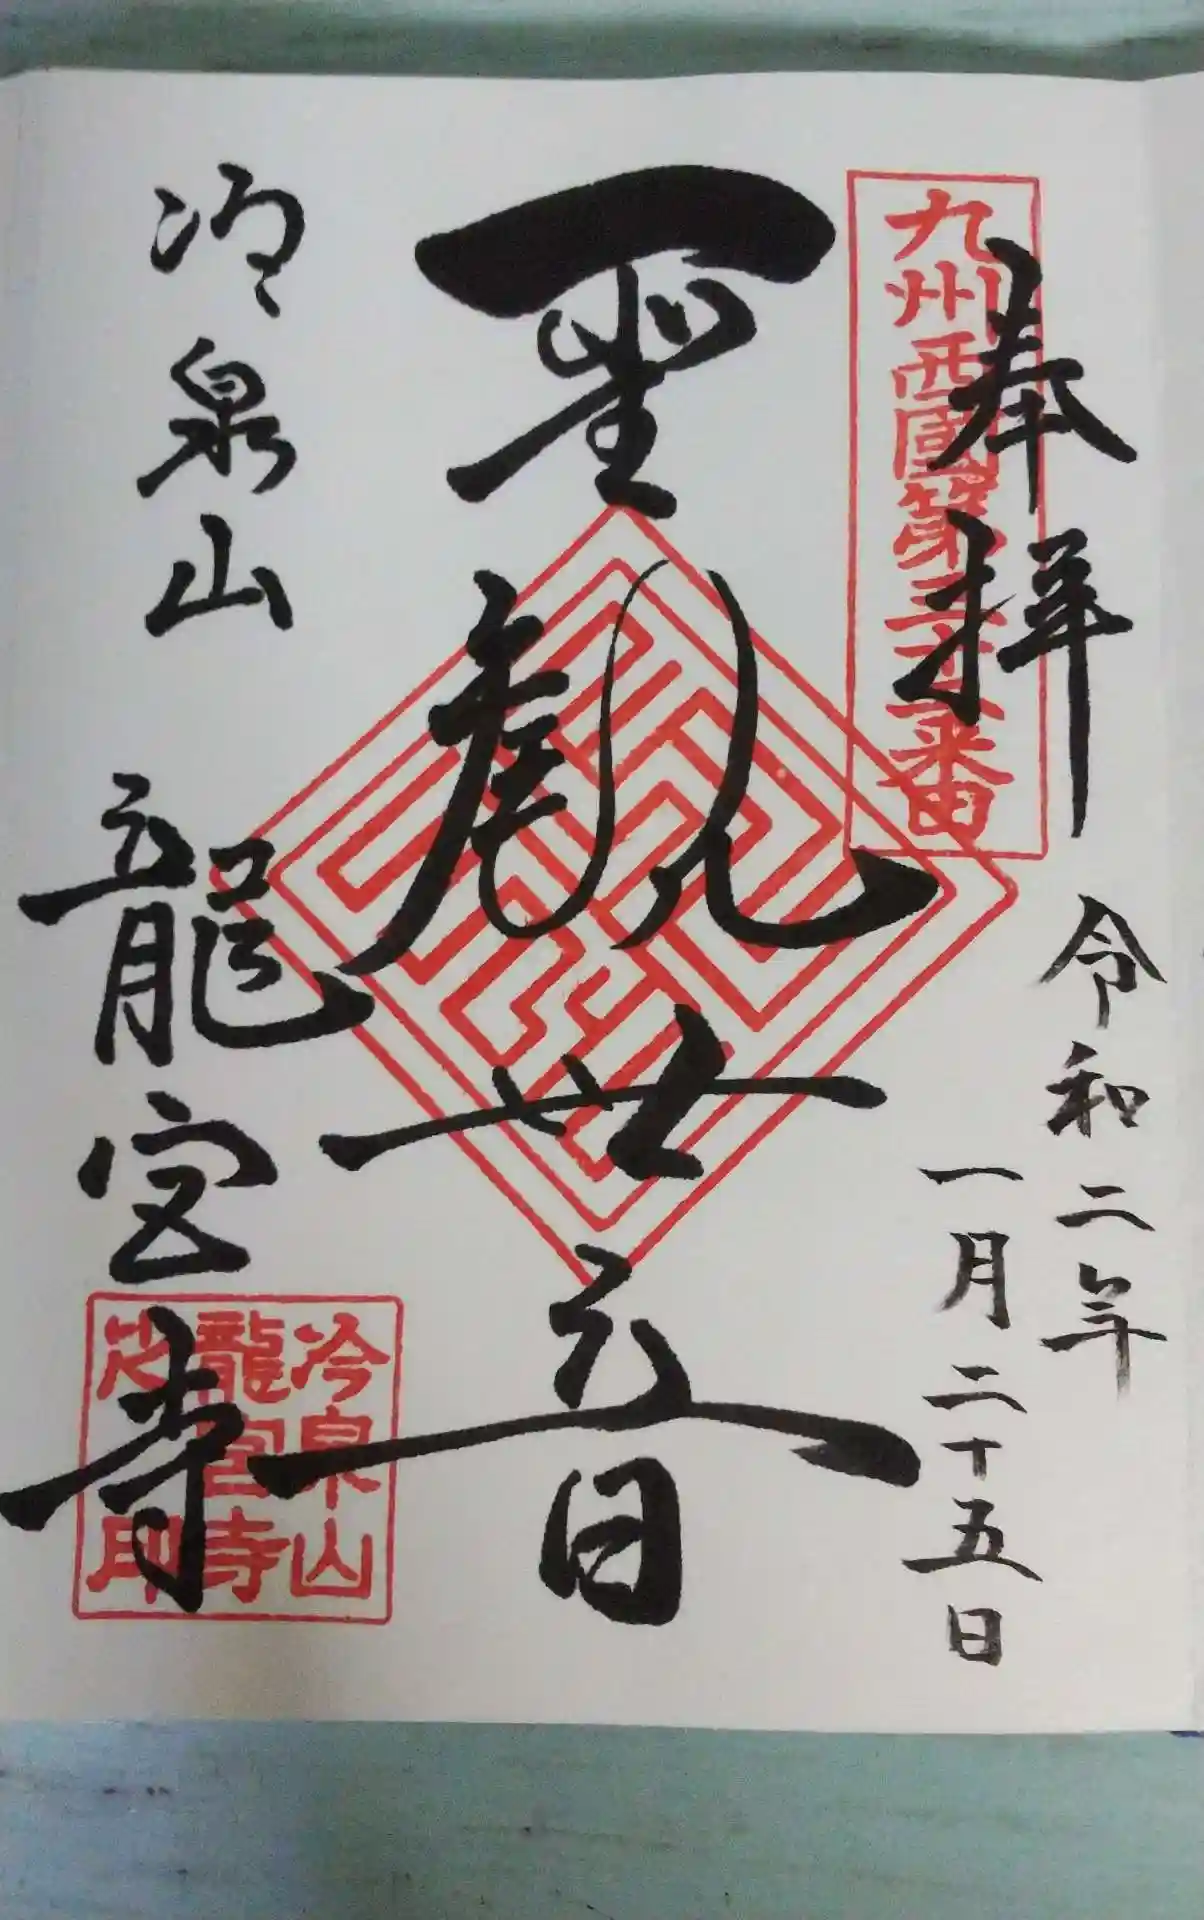 九州西國第三十二番
奉拝
令和二年
一月二十五日
聖観世音
冷泉山 龍宮寺
冷泉山
龍宮寺
之印